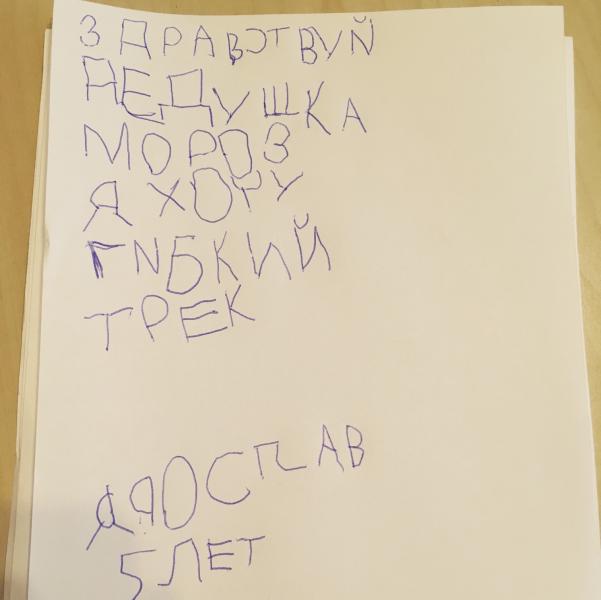 ЗДРАВСТВУЙ
ДЕДУШКА
МОРОЗ
Я ХОЧУ
ГИБКИЙ
ТРЕК
ЯЯОСЛАВ
5 ЛЕТ